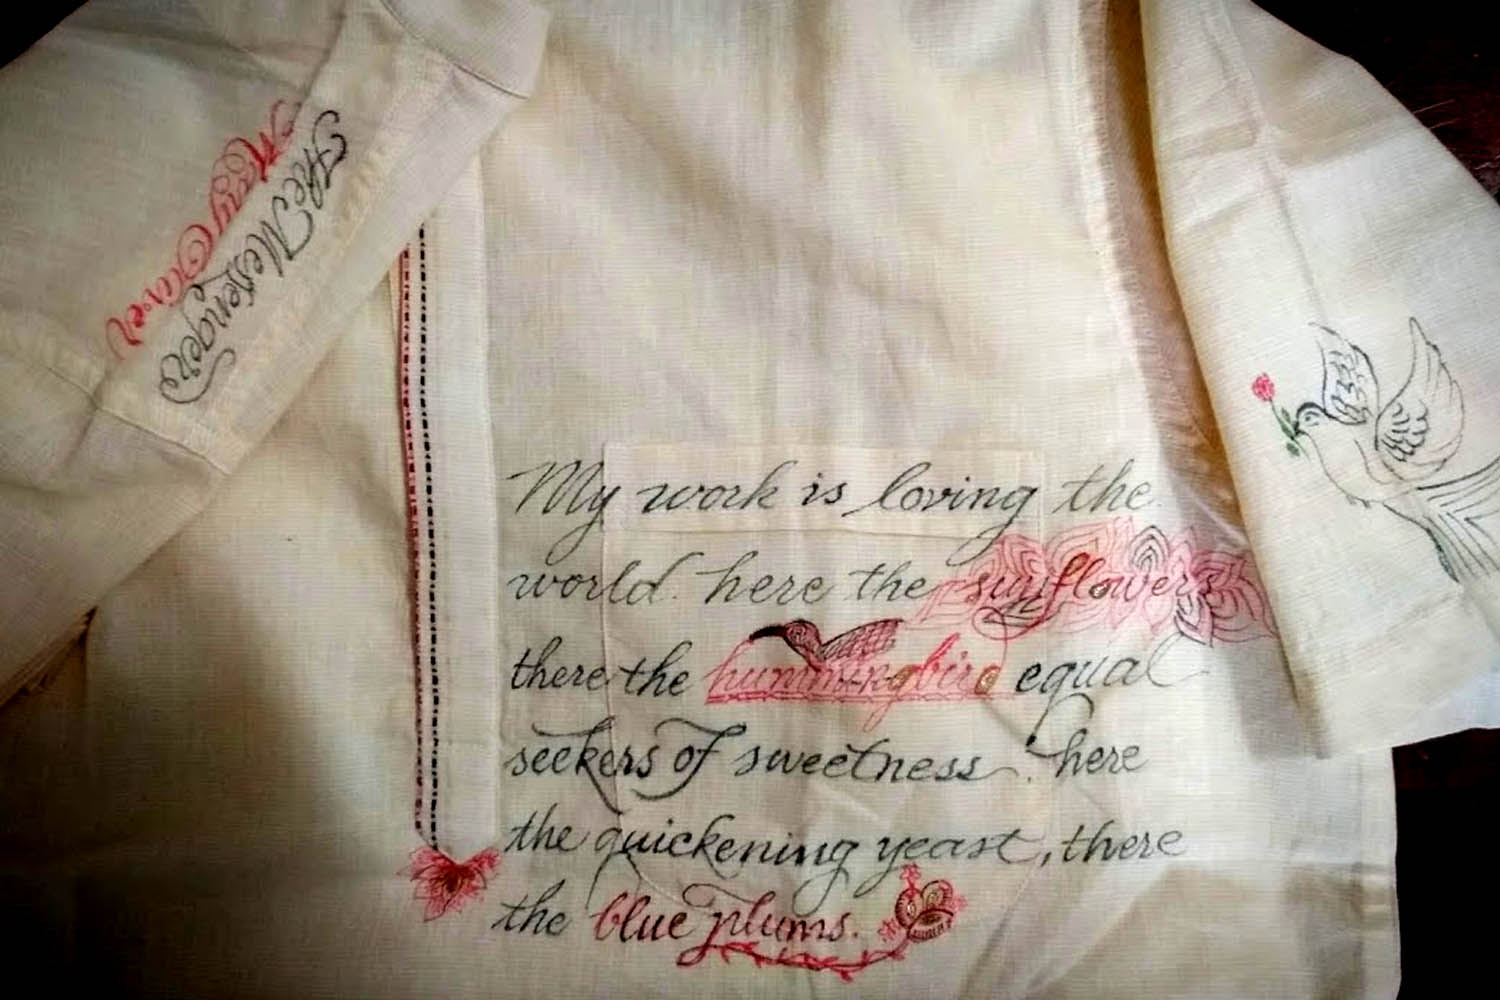 The Messenger
Mary Oliver
My work is loving the
world. here the sunflowers
there the hummingbird equal
seekers of sweetness. here
the quickening yeast, there
the blue plums.